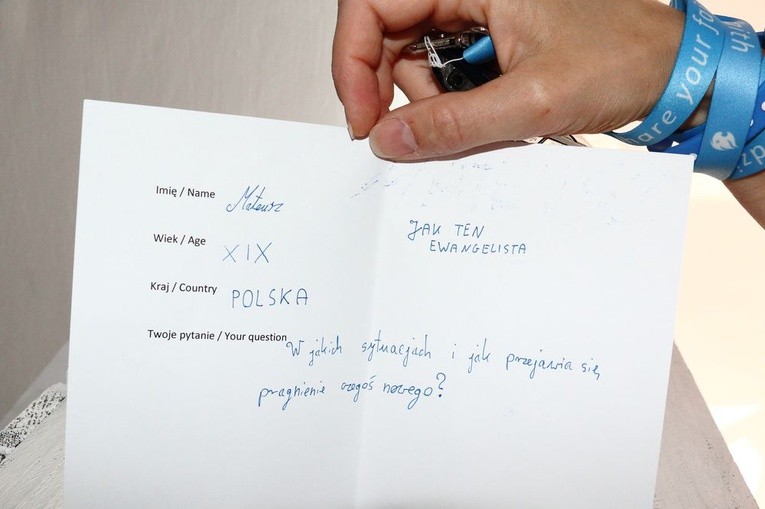 are your fa
th
zp
Imię / Name Mateusz
JAK TEN
EWANGELISTA
Wiek / Age XIX
Kraj / Country POLSKA
Twoje pytanie / Your question W jakich sytuacjach i jak przejawia się
pragnienie czegoś nowego?